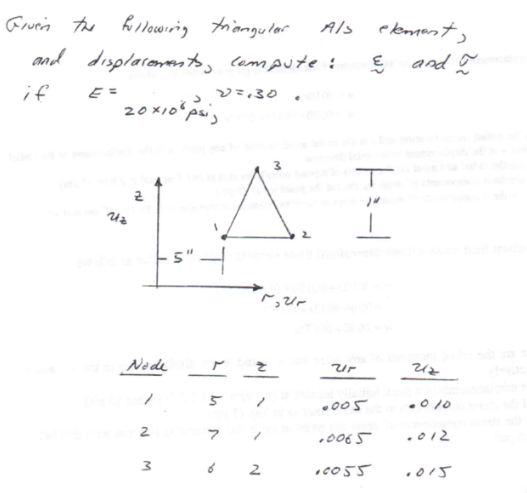 Given the following triangular A/s element,
and displacements, compute: ε and σ
if E= 20×10⁶ psi, ν=.30 .
z
uz
3
1
2
1"
5"
r, ur
Node r z ur uz
1 5 1 .005 .010
2 7 1 .0065 .012
3 6 2 .0055 .015